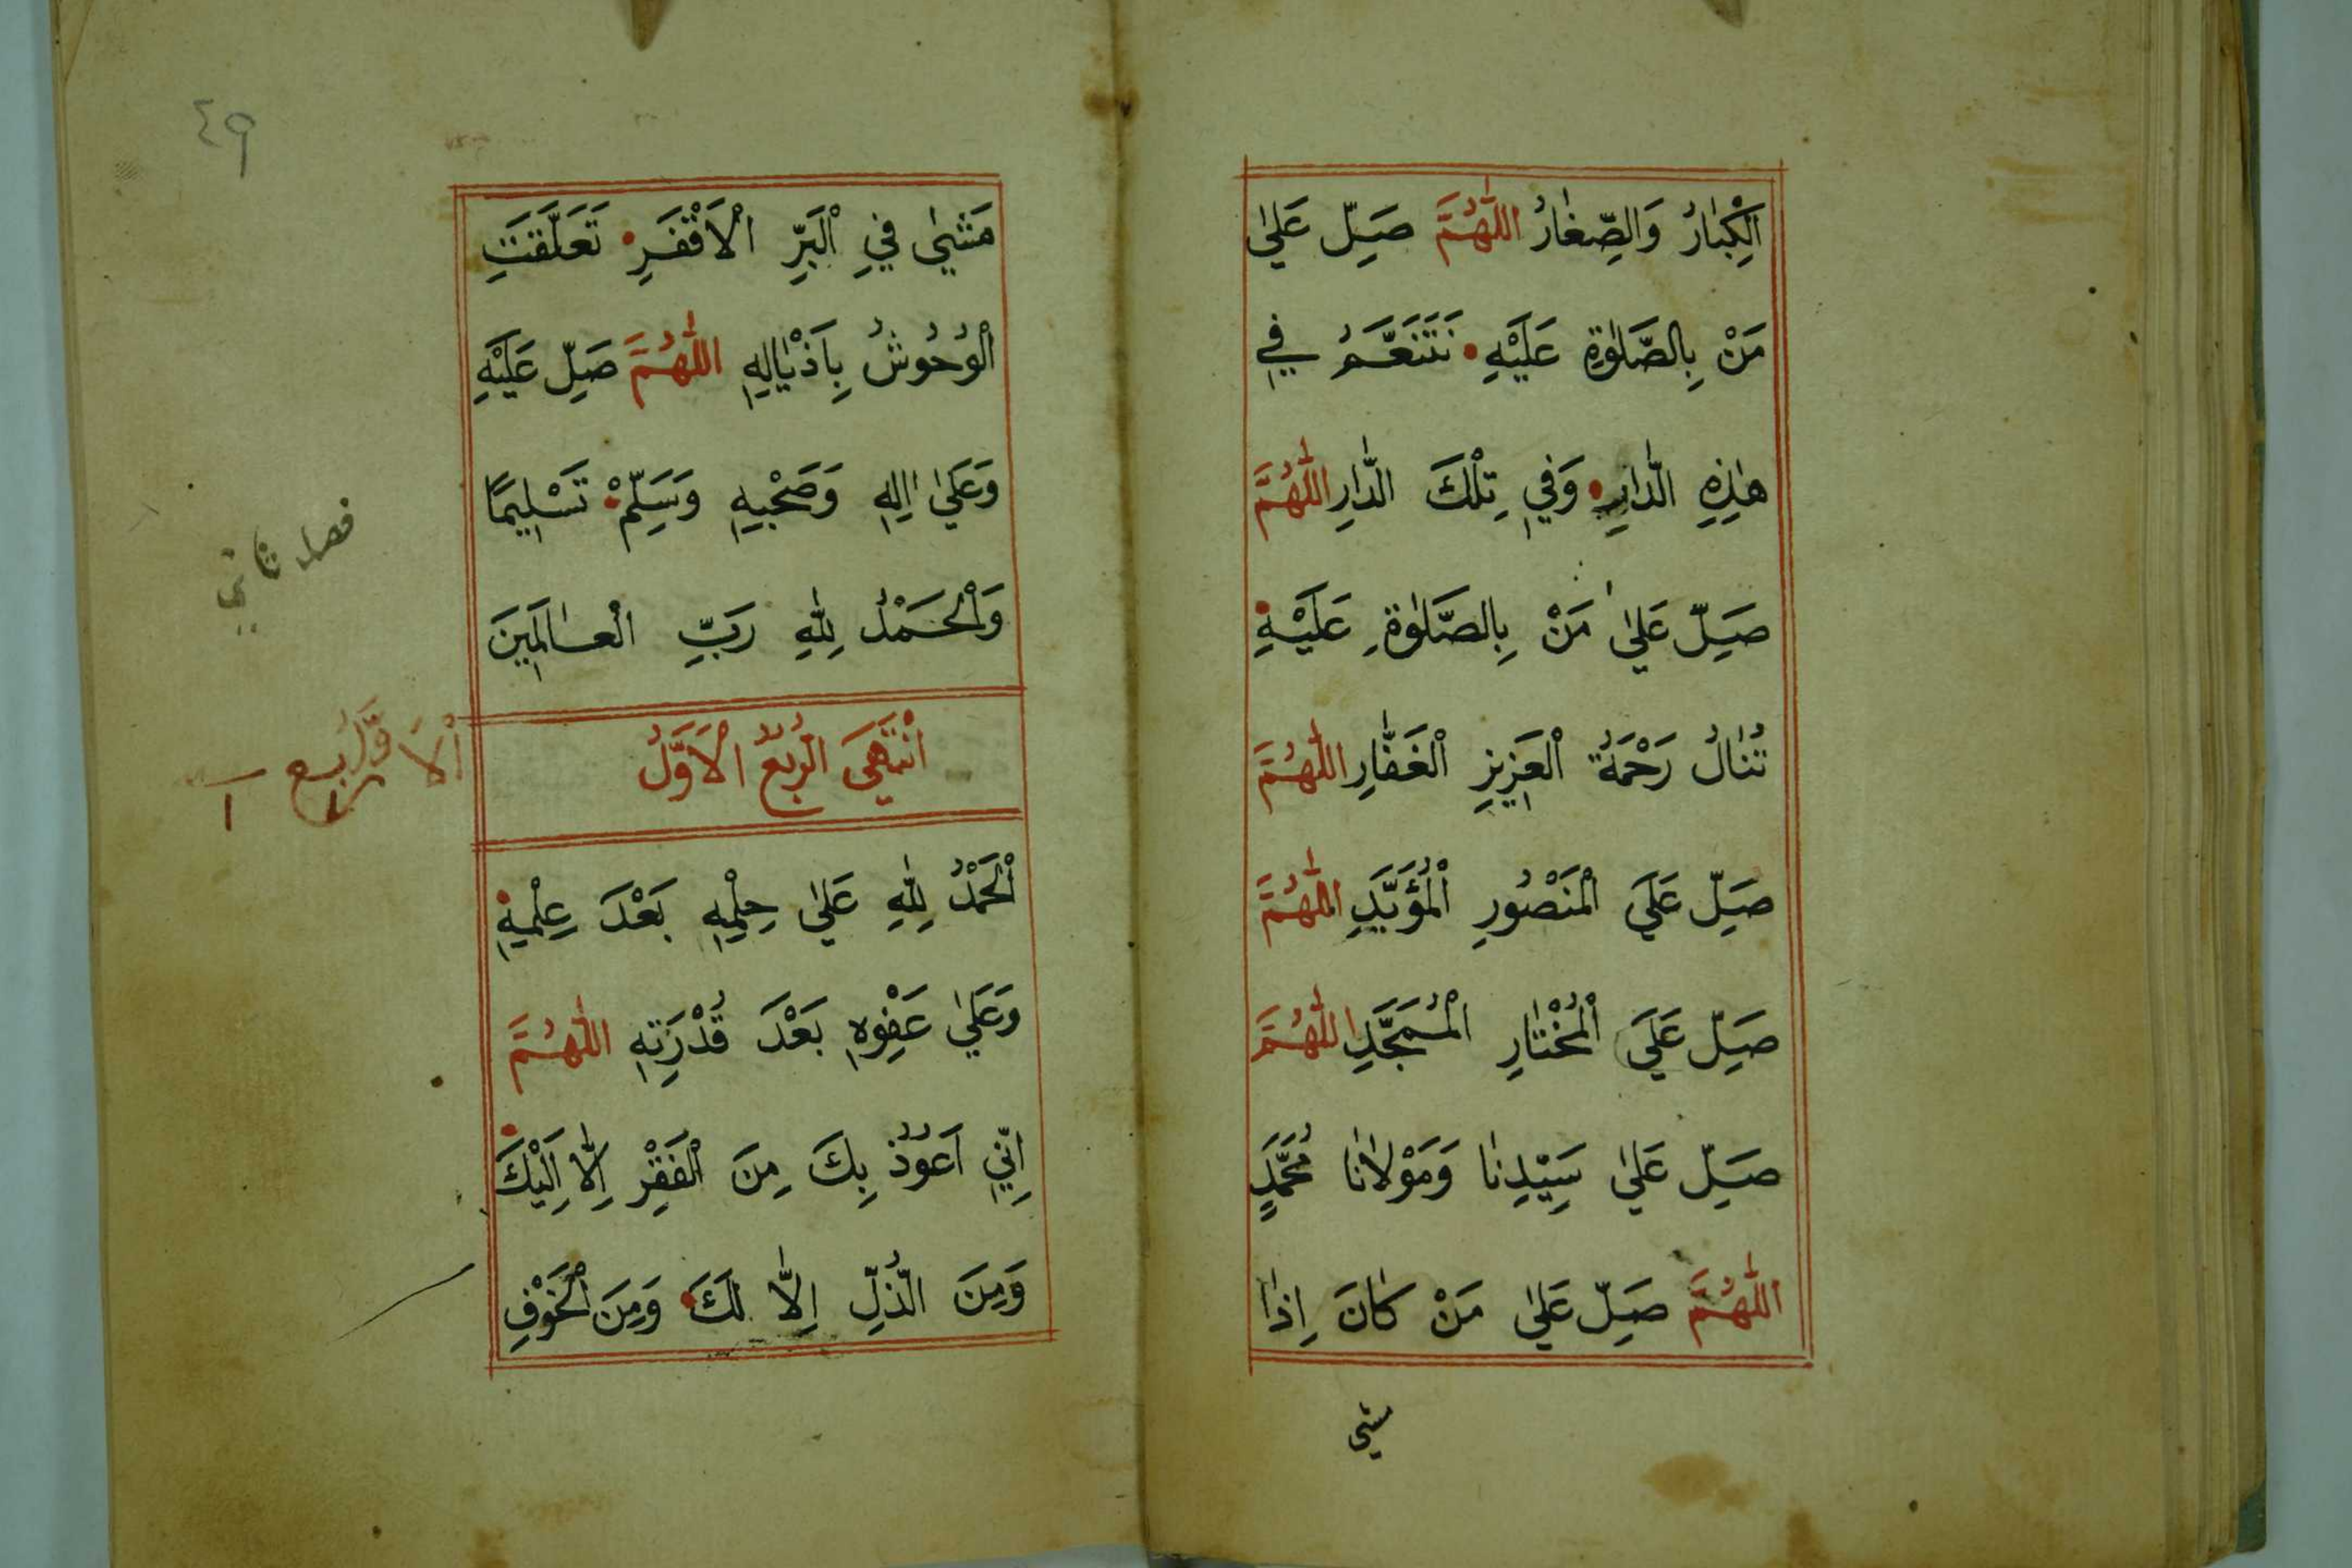 اَلْكِبٰارُ وَالصِّغٰارُ اللّٰهُمَّ صَلِّ عَلٰي
مَنْ بِالصَّلٰوةِ عَلَيْهِ • نَتَنَعَّمُ فِي
هٰذِهِ الدّٰارِ • وَفِي تِلْكَ الدّٰارِ اللّٰهُمَّ
صَلِّ عَلٰي مَنْ بِالصَّلٰوةِ عَلَيْهِ •
تُنٰالُ رَحْمَةُ الْعَزِيزِ الْغَفّٰارِ اللّٰهُمَّ
صَلِّ عَلَي الْمَنْصُورِ الْمُؤَيَّدِ اللّٰهُمَّ
صَلِّ عَلَي الْمُخْتٰارِ الْمُمَجَّدِ اللّٰهُمَّ
صَلِّ عَلٰي سَيِّدِنٰا وَمَوْلٰانٰا مُحَمَّدٍ
اللّٰهُمَّ صَلِّ عَلٰي مَنْ كٰانَ اِذٰا
مشي
٤٩
مَشٰي فِي الْبَرِّ الْاَقْفَرِ • تَعَلَّقَتِ
الْوُحُوشُ بِاَذْيٰالِهِ اللّٰهُمَّ صَلِّ عَلَيْهِ
وَعَلٰي اٰلِهِ وَصَحْبِهِ وَسَلِّمْ • تَسْلِيمًا
وَالْحَمْدُ لِلّٰهِ رَبِّ الْعٰالَمِينَ
فصل ثاني
اِنْتَهَي الرُّبُعُ الْاَوَّلُ
اَلْاَوَّلُ ربع ١
اَلْحَمْدُ لِلّٰهِ عَلٰي حِلْمِهِ بَعْدَ عِلْمِهِ •
وَعَلٰي عَفْوِهِ بَعْدَ قُدْرَتِهِ اللّٰهُمَّ
اِنِّي اَعُوذُ بِكَ مِنَ الْفَقْرِ اِلّٰا اِلَيْكَ •
وَمِنَ الذُّلِّ اِلّٰا لَكَ • وَمِنَ الْخَوْفِ